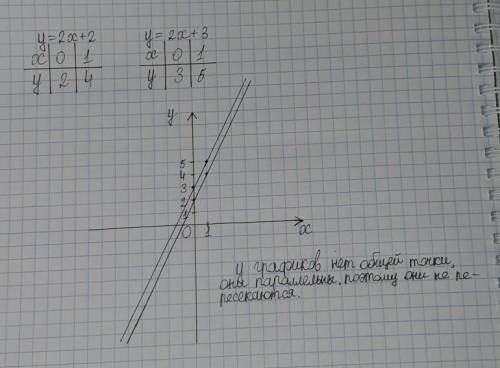 y=2x+2
x 0 1
y 2 4
y=2x+3
x 0 1
y 3 5
y
5
4
3
2
1
0 1 x
У графиков нет общей точки,
оны параллельны, поэтому они не пе-
ресекаются.